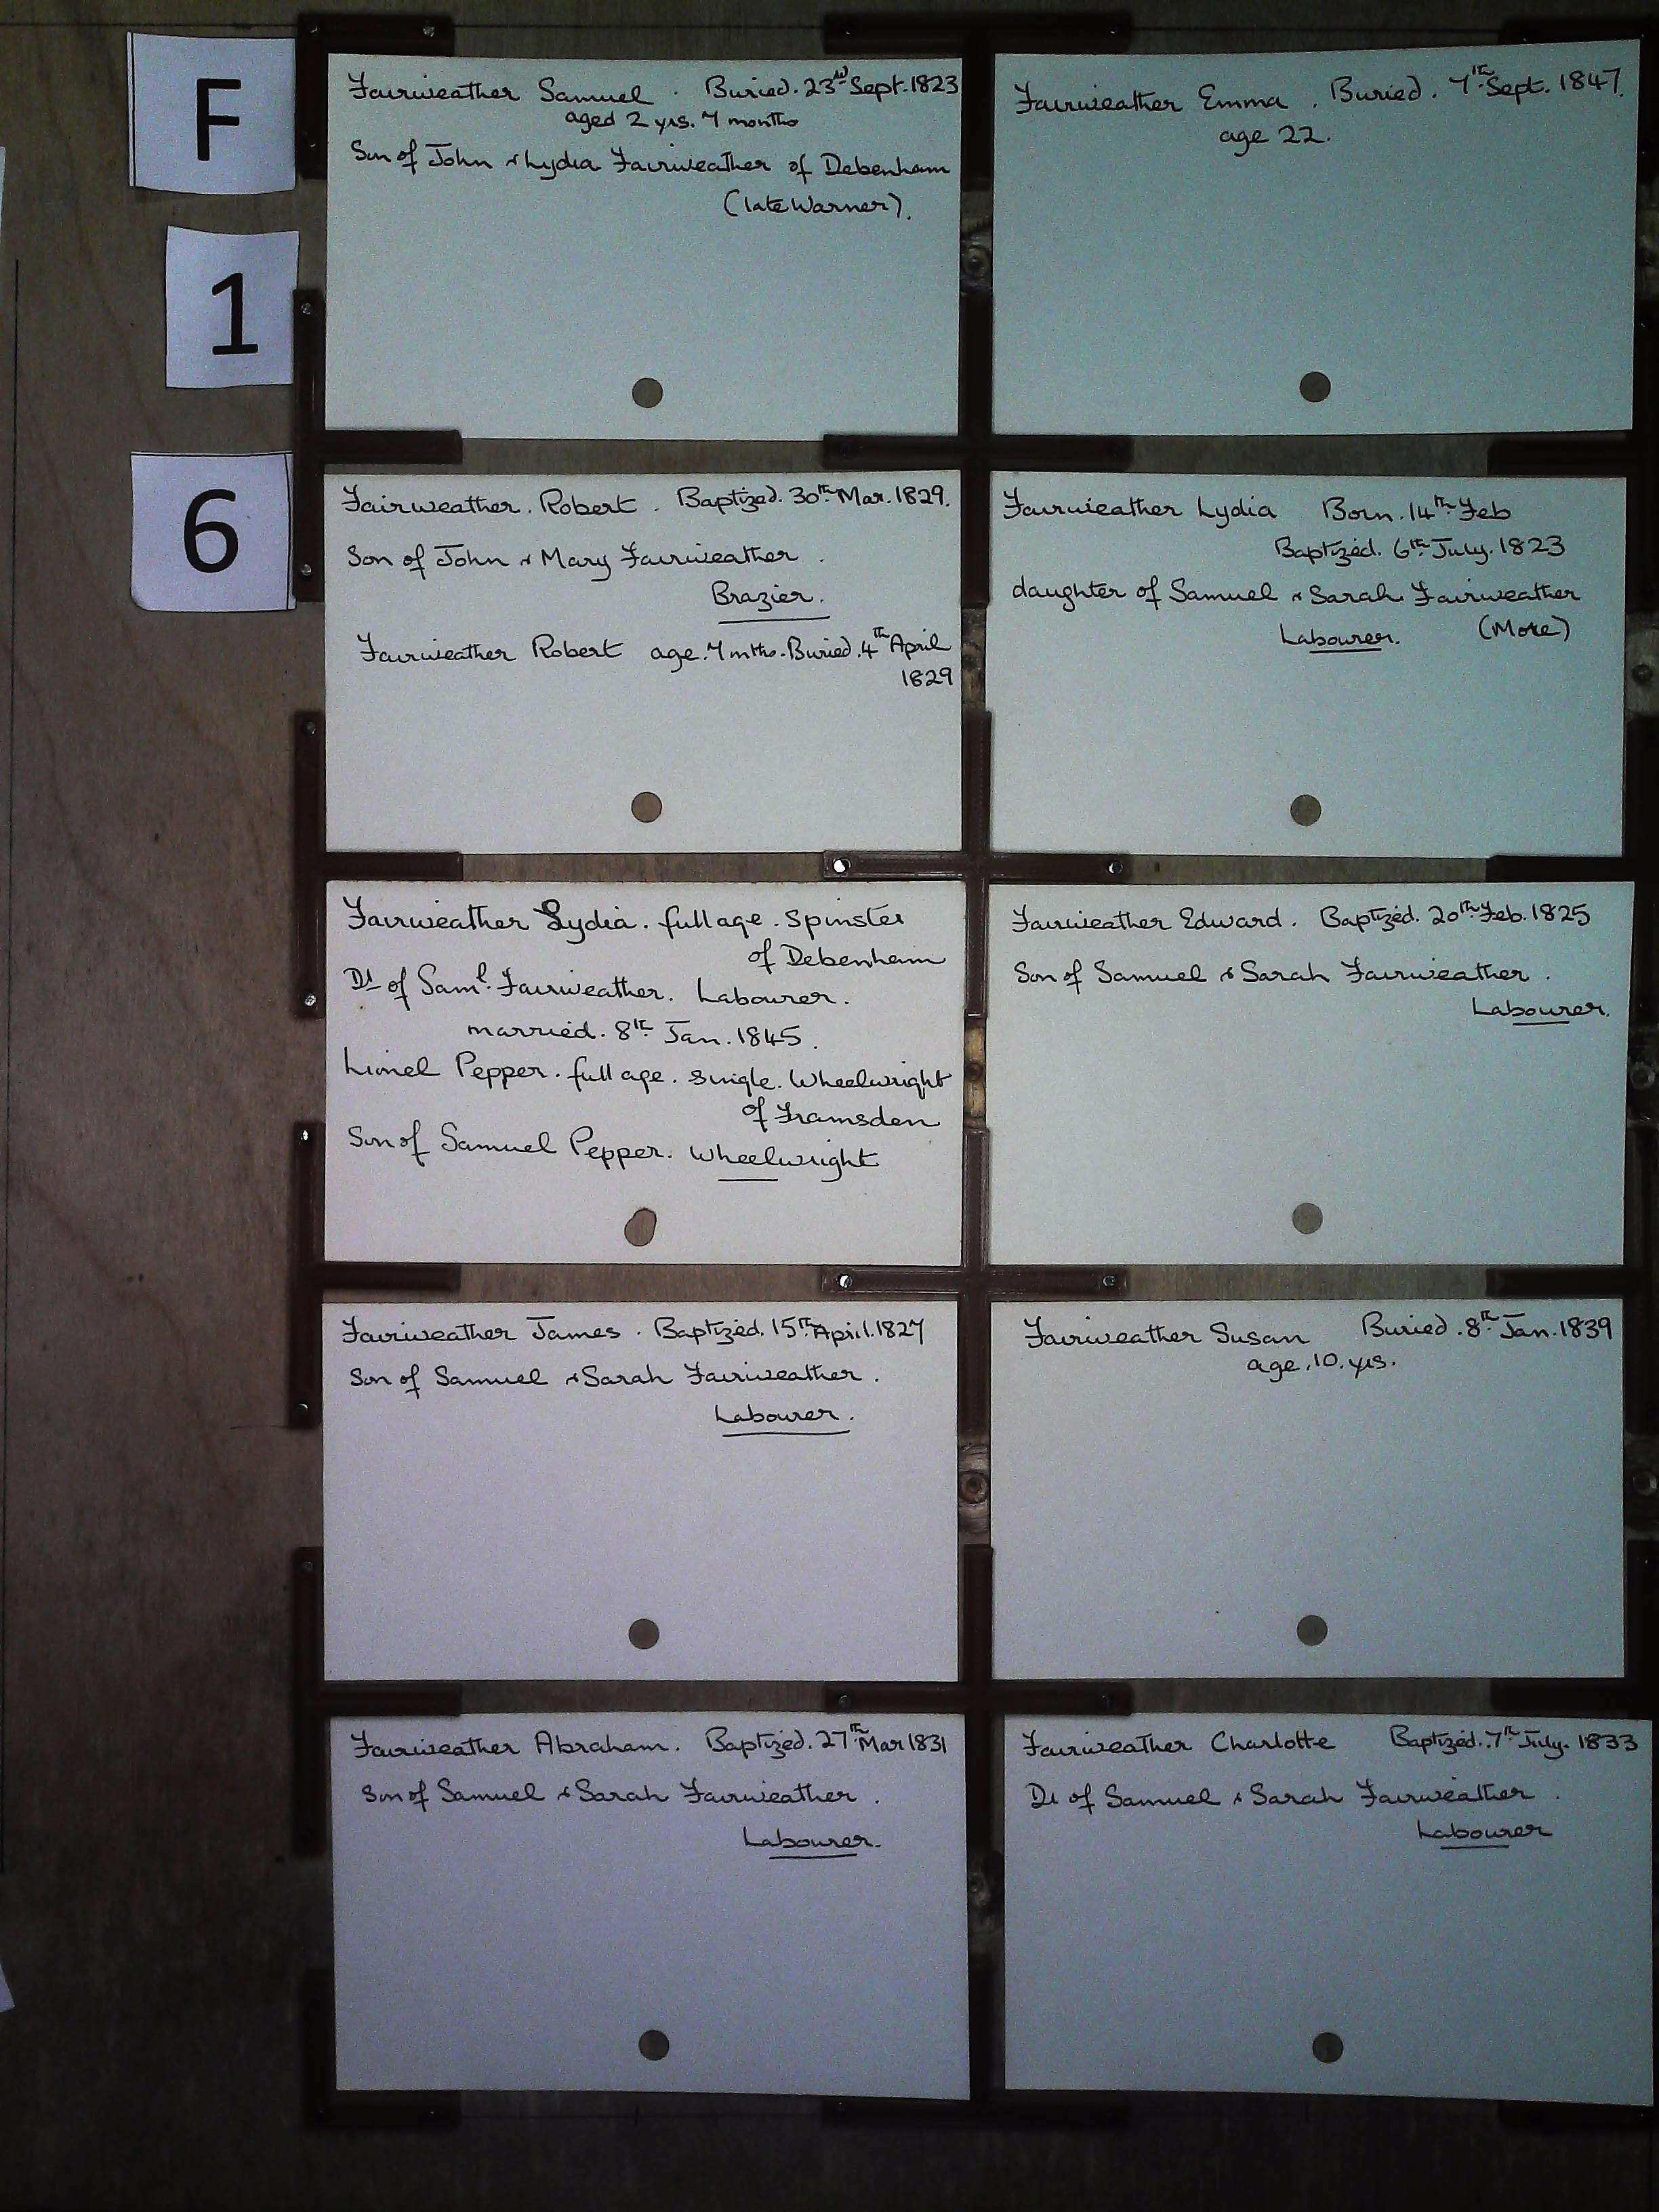 F
1
6
Fairweather Samuel . Buried. 23rd Sept. 1823
aged 2 yrs. 7 months
Son of John & Lydia Fairweather of Debenham
(late Warner).
Fairweather Emma . Buried. 7th Sept. 1847.
age 22.
Fairweather. Robert . Baptized. 30th Mar. 1829.
Son of John & Mary Fairweather .
Brazier.
Fairweather Robert age. 7 mths. Buried. 4th April
1829
Fairweather Lydia Born. 14th Feb
Baptized. 6th July. 1823
daughter of Samuel & Sarah Fairweather
Labourer. (More)
Fairweather Lydia. full age. Spinster
of Debenham
Dr of Saml. Fairweather. Labourer.
married. 8th Jan. 1845.
Lionel Pepper. full age. single. Wheelwright
of Framsden
Son of Samuel Pepper. Wheelwright
Fairweather Edward. Baptized. 20th Feb. 1825
Son of Samuel & Sarah Fairweather .
Labourer.
Fairweather James . Baptized. 15th April. 1827
Son of Samuel & Sarah Fairweather .
Labourer.
Fairweather Susan Buried. 8th Jan. 1839
age. 10. yrs.
Fairweather Abraham. Baptized. 27th Mar 1831
Son of Samuel & Sarah Fairweather .
Labourer.
Fairweather Charlotte Baptized. 7th July. 1833
Dr of Samuel & Sarah Fairweather .
Labourer